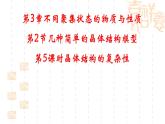 第3章不同聚集状态的物质与性质
第2节几种简单的晶体结构模型
第5课时晶体结构的复杂性